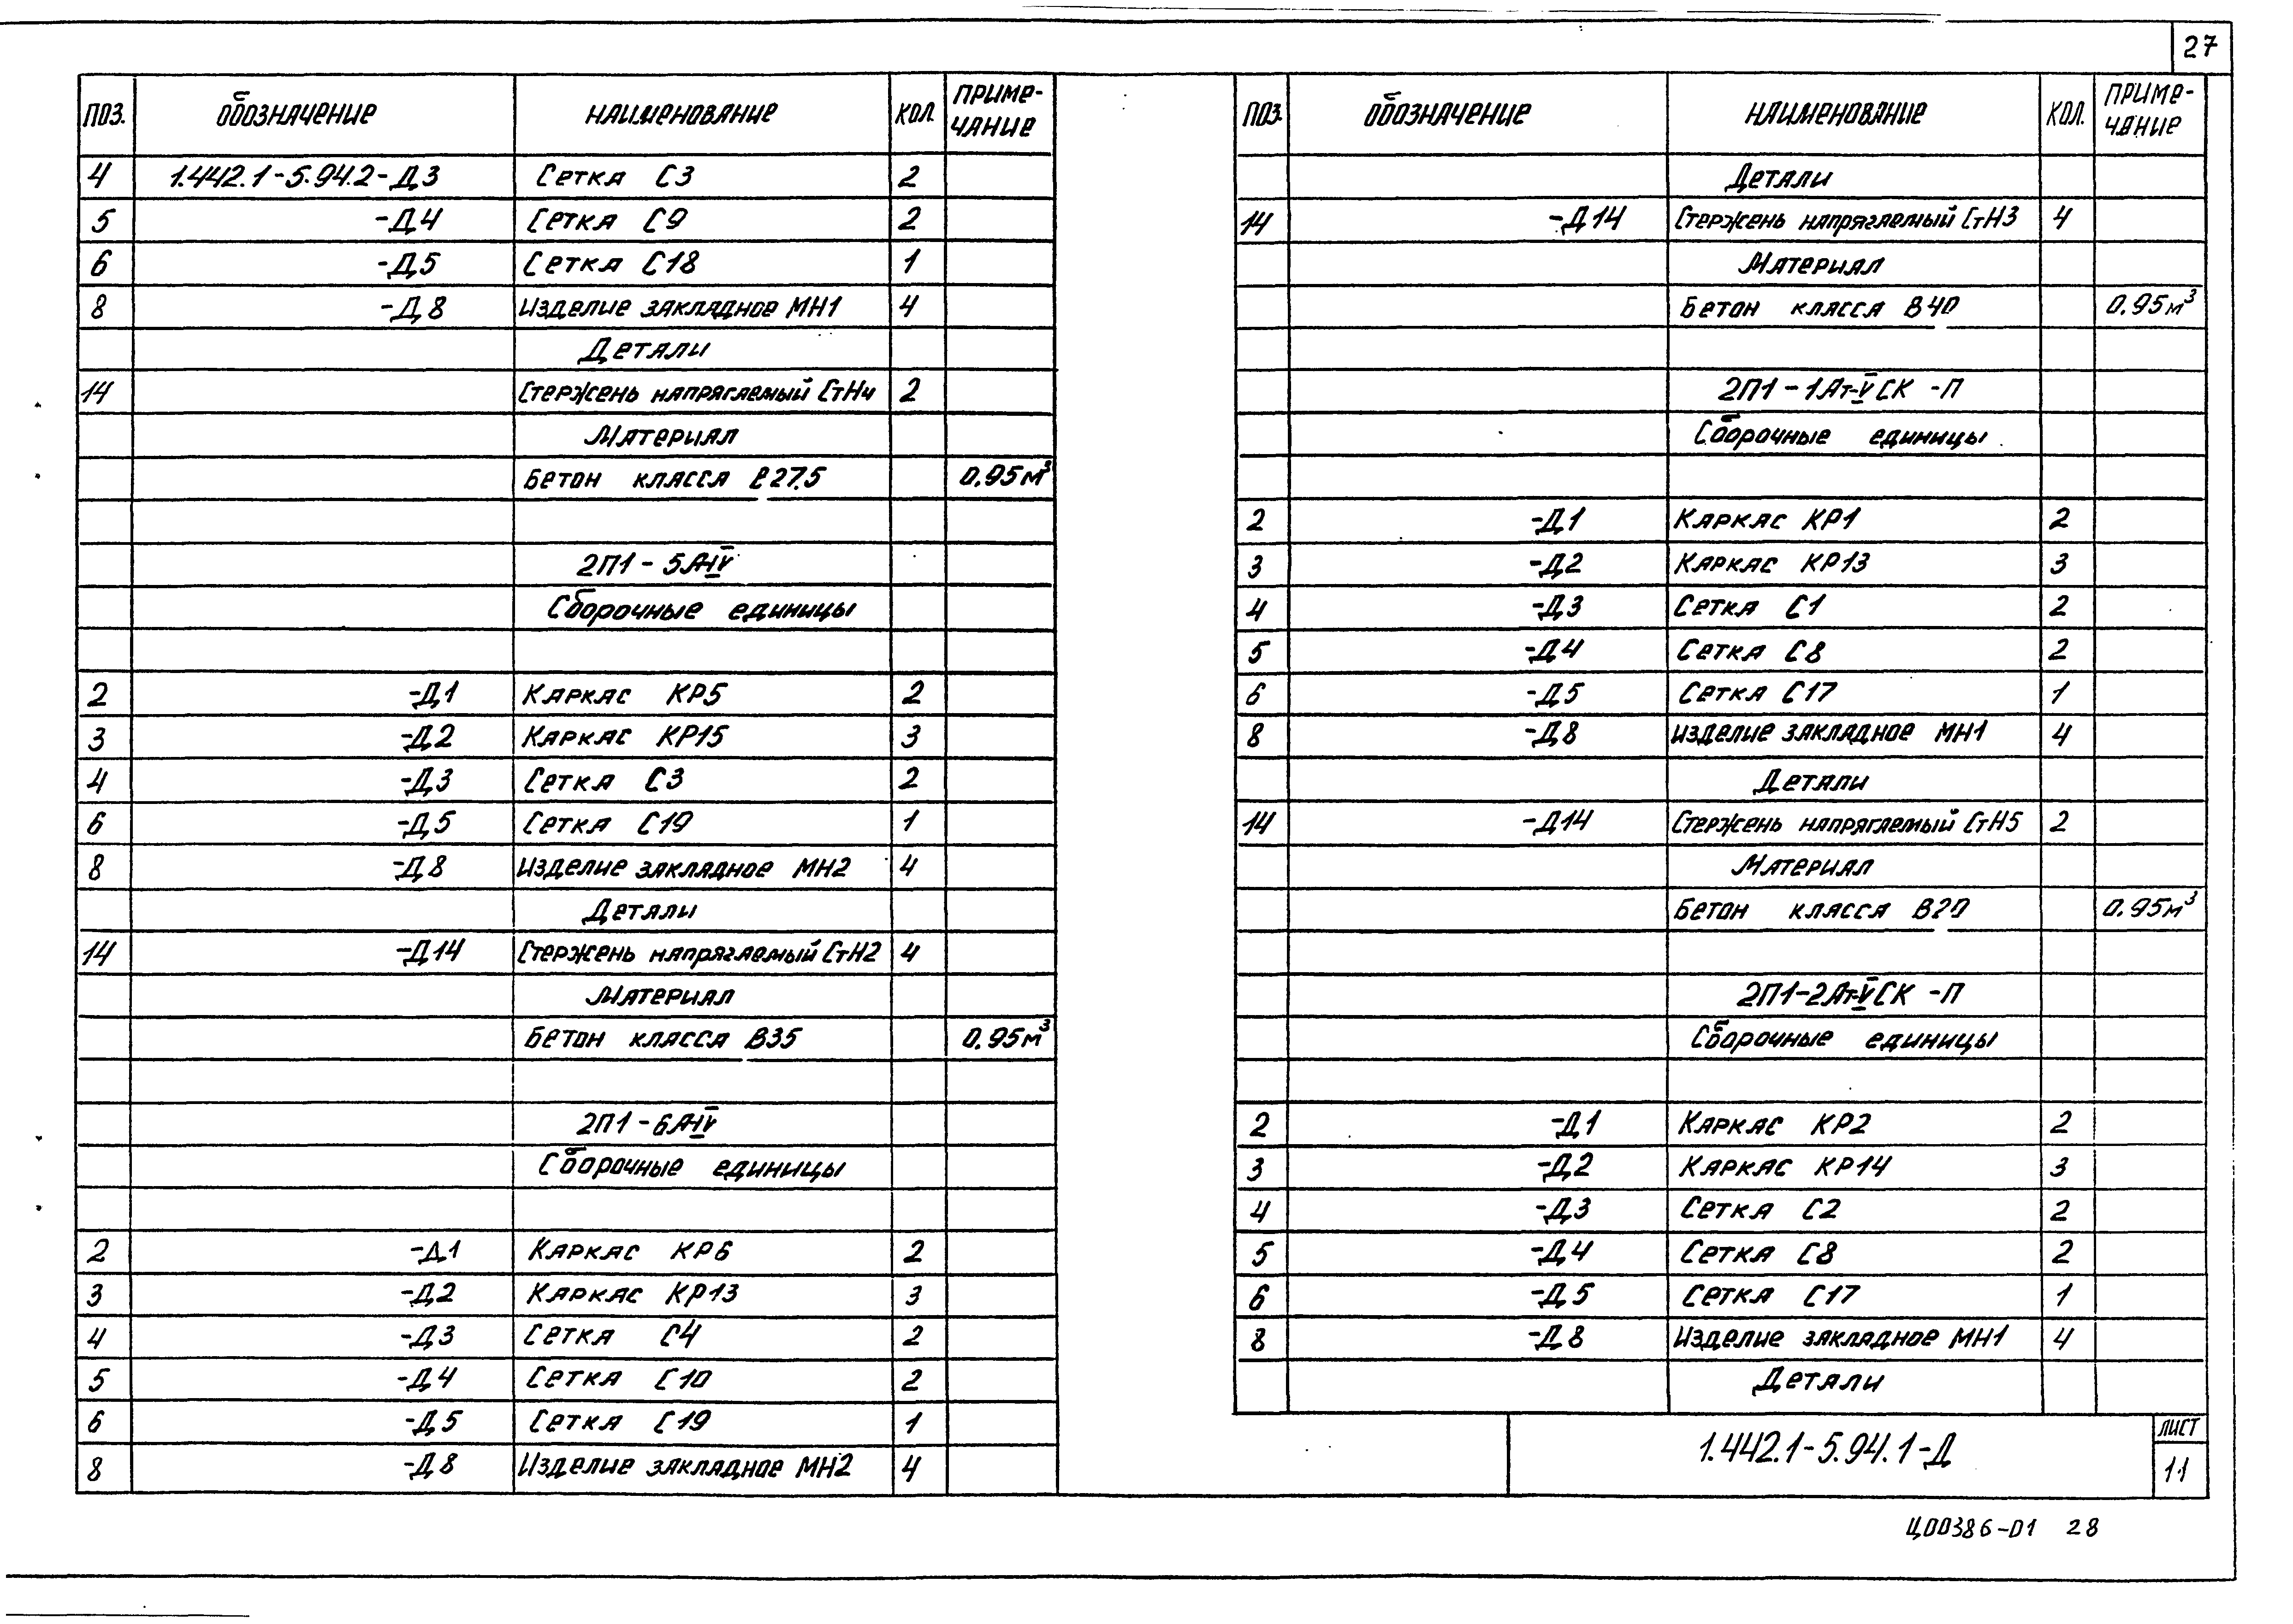 27
ПОЗ. ОБОЗНАЧЕНИЕ НАИМЕНОВАНИЕ КОЛ. ПРИМЕ-
ЧАНИЕ
4 1.442.1-5.94.2-Д3 Сетка С3 2
5 -Д4 Сетка С9 2
6 -Д5 Сетка С18 1
8 -Д8 Изделие закладное МН1 4
Детали
14 Стержень напрягаемый СтН4 2
Материал
Бетон класса В27.5 0.95м³
2П1-5А-IV
Сборочные единицы
2 -Д1 Каркас КР5 2
3 -Д2 Каркас КР15 3
4 -Д3 Сетка С3 2
6 -Д5 Сетка С19 1
8 -Д8 Изделие закладное МН2 4
Детали
14 -Д14 Стержень напрягаемый СтН2 4
Материал
Бетон класса В35 0.95м³
2П1-6А-IV
Сборочные единицы
2 -Д1 Каркас КР6 2
3 -Д2 Каркас КР13 3
4 -Д3 Сетка С4 2
5 -Д4 Сетка С10 2
6 -Д5 Сетка С19 1
8 -Д8 Изделие закладное МН2 4
ПОЗ. ОБОЗНАЧЕНИЕ НАИМЕНОВАНИЕ КОЛ. ПРИМЕ-
ЧАНИЕ
Детали
14 -Д14 Стержень напрягаемый СтН3 4
Материал
Бетон класса В40 0.95м³
2П1-1Ат-VСК-П
Сборочные единицы
2 -Д1 Каркас КР1 2
3 -Д2 Каркас КР13 3
4 -Д3 Сетка С1 2
5 -Д4 Сетка С8 2
6 -Д5 Сетка С17 1
8 -Д8 Изделие закладное МН1 4
Детали
14 -Д14 Стержень напрягаемый СтН5 2
Материал
Бетон класса В20 0.95м³
2П1-2Ат-VСК-П
Сборочные единицы
2 -Д1 Каркас КР2 2
3 -Д2 Каркас КР14 3
4 -Д3 Сетка С2 2
5 -Д4 Сетка С8 2
6 -Д5 Сетка С17 1
8 -Д8 Изделие закладное МН1 4
Детали
1.442.1-5.94.1-Д
ЛИСТ
11
Ц00386-01 28